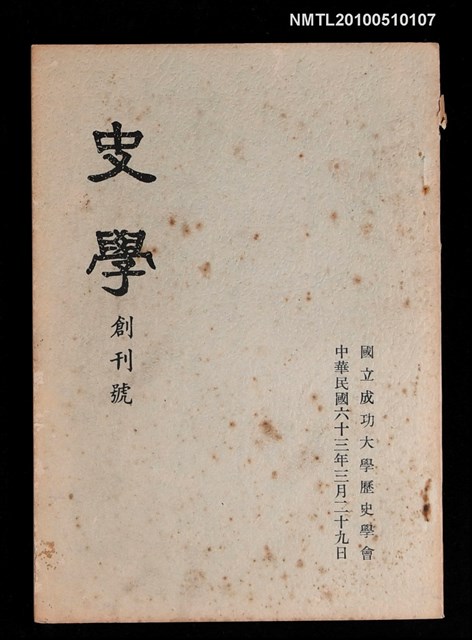 NMTL20100510107
史學
創刊號
國立成功大學歷史學會
中華民國六十三年三月二十九日